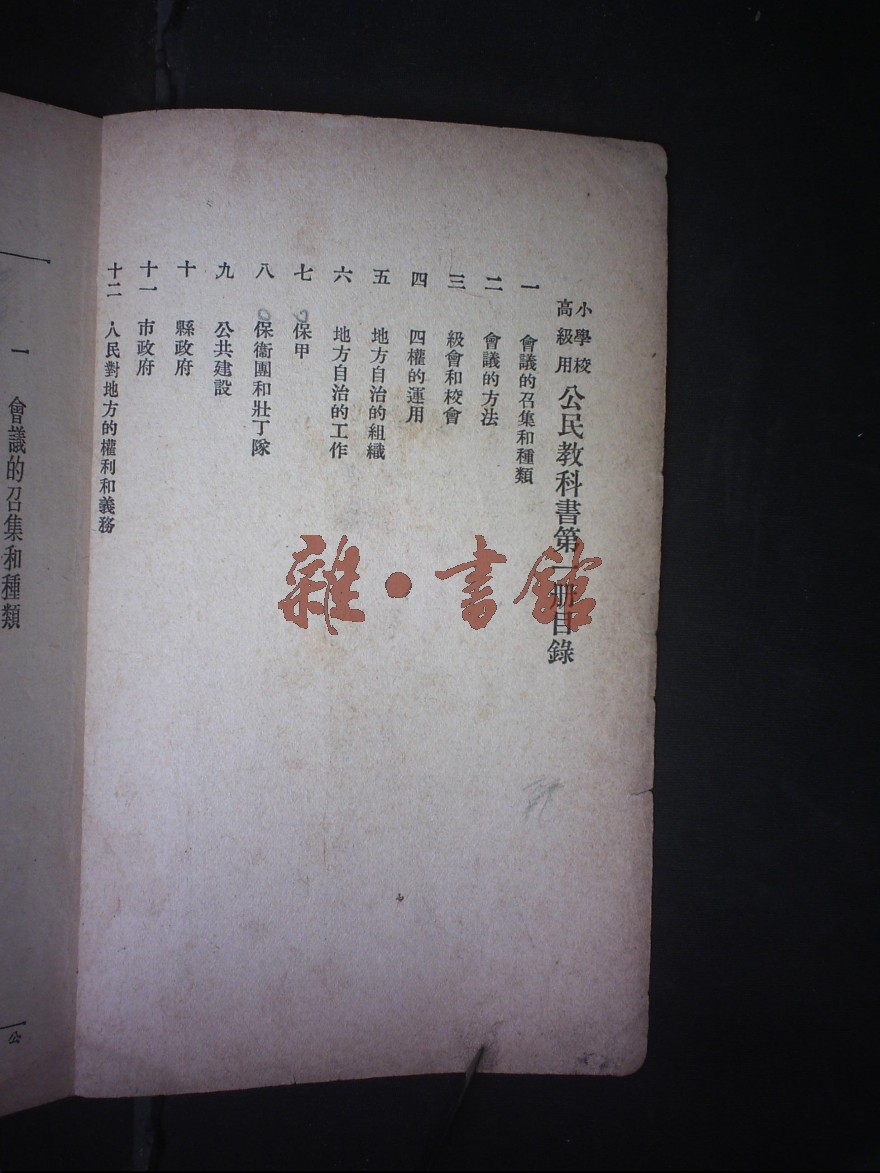 小學校
高級用
公民教科書第一册目錄
一 會議的召集和種類
二 會議的方法
三 級會和校會
四 四權的運用
五 地方自治的組織
六 地方自治的工作
七 保甲
八 保衞團和壯丁隊
九 公共建設
十 縣政府
十一 市政府
十二 人民對地方的權利和義務
一 會議的召集和種類
公
雜·書館